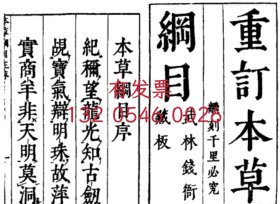 重訂本草
綱目
翻刻千里必究
武林錢衙
藏板
本草綱目序
紀稱望龍光知古劍
覘寶氣辯明珠故萍
實商羊非天明莫洞
有发票